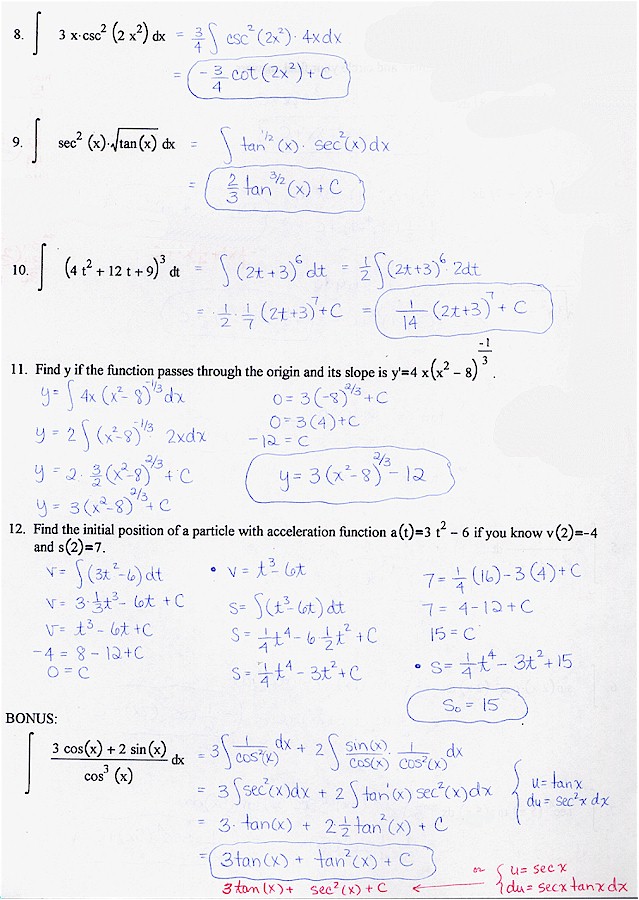 8. ∫ 3 x·csc² (2 x²) dx = 3/4 ∫ csc²(2x²)· 4xdx
= -3/4 cot(2x²) + C
9. ∫ sec² (x)·√tan(x) dx = ∫ tan^1/2 (x) · sec²(x)dx
= 2/3 tan^3/2 (x) + C
10. ∫ (4 t² + 12 t + 9)³ dt = ∫ (2t+3)⁶ dt = 1/2 ∫(2t+3)⁶ · 2dt
= 1/2 · 1/7 (2t+3)⁷ + C = 1/14 (2t+3)⁷ + C
11. Find y if the function passes through the origin and its slope is y'=4 x(x² – 8)^-1/3.
y= ∫ 4x (x²- 8)^-1/3 dx
y = 2 ∫ (x²-8)^-1/3 2xdx
y = 2 · 3/2 (x²-8)^2/3 + C
y = 3(x²-8)^2/3 + C
0 = 3(-8)^2/3 + C
0 = 3(4)+C
-12 = C
y = 3(x²-8)^2/3 - 12
12. Find the initial position of a particle with acceleration function a(t)=3 t² – 6 if you know v(2)=-4
and s(2)=7.
v= ∫(3t²-6)dt
v= 3·1/3t³- 6t + C
v= t³ - 6t+C
-4 = 8 - 12+C
0 = C
• v = t³- 6t
s= ∫(t³-6t)dt
s = 1/4t⁴- 6·1/2t² + C
s = 1/4t⁴ - 3t² + C
7 = 1/4(16) - 3(4)+C
7 = 4-12+C
15 = C
• s= 1/4t⁴ - 3t²+15
S₀ = 15
BONUS:
∫ 3 cos(x) + 2 sin(x) / cos³ (x) dx = 3∫ 1/cos²(x) dx + 2∫ sin(x)/cos(x) · 1/cos²(x) dx
= 3 ∫sec²(x)dx + 2 ∫tan¹(x) sec²(x)dx { u= tanx
du = sec²x dx
= 3· tan(x) + 2·1/2 tan²(x) + C
= 3tan(x) + tan²(x) + C
or { u= secx
3tan(x)+ sec²(x) + C ← du= secx tanx dx